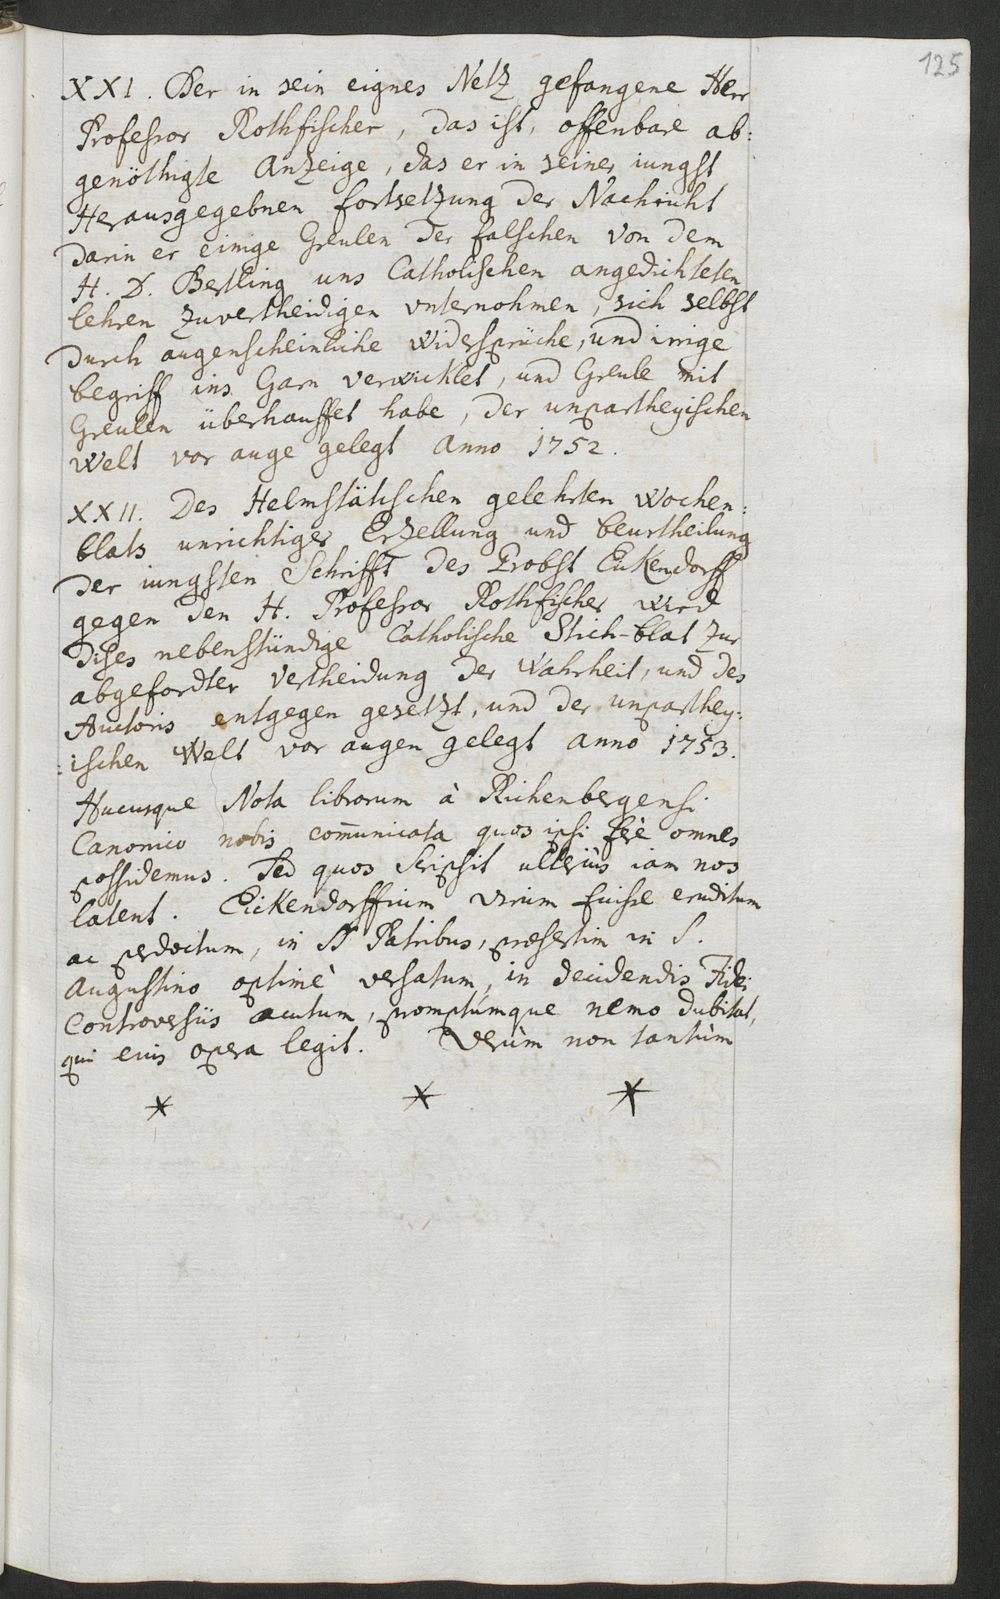 125
XXI. Der in sein eignes Netz gefangene Herr
Professor Rothfischer, das ist, offenbare ab:
genöthigte Anzeige, das er in seiner iungst
Herausgegebnen fortsetzung der Nachricht
darin er einige Greulen der falschen von dem
H. D. Bertling uns Catholischen angedichteten
lehren zuvertheidigen unternohmen, sich selbst
durch augenscheinliche widersprüche, und irrige
begriff ins Garn verwicklet, und Greule mit
Greulen überhauffet habe, der unpartheyischen
Welt vor auge gelegt Anno 1752.
XXII. Des Helmstätischen gelehrten wochen:
blats unrichtiger Erzellung und beurtheilung
der iungsten Schrifft des Probst Eickendorff
gegen den H. Professor Rothfischer wird
dises nebenstündige Catholische Stich-blat zur
abgefordter vertheidung der Wahrheit, und des
Auctoris entgegen gesetzt, und der unparthey:
:ischen Welt vor augen gelegt anno 1753.
Hucusque Nota librorum à Richenbergensi
Canonico nobis com̄unicata quos ipsi ferè omnes
possidemus. Sed quos scripsit ulteriùs iam nos
latent. Eickendorffium virum fuisse eruditum
ac perdoctum, in SS Patribus, præsertim in S.
Augustino optimè versatum, in decidendis Fidei
Controversiis acutum, promptúmque nemo dubitat,
qui eius opera legit. Verùm non tantùm
* * *